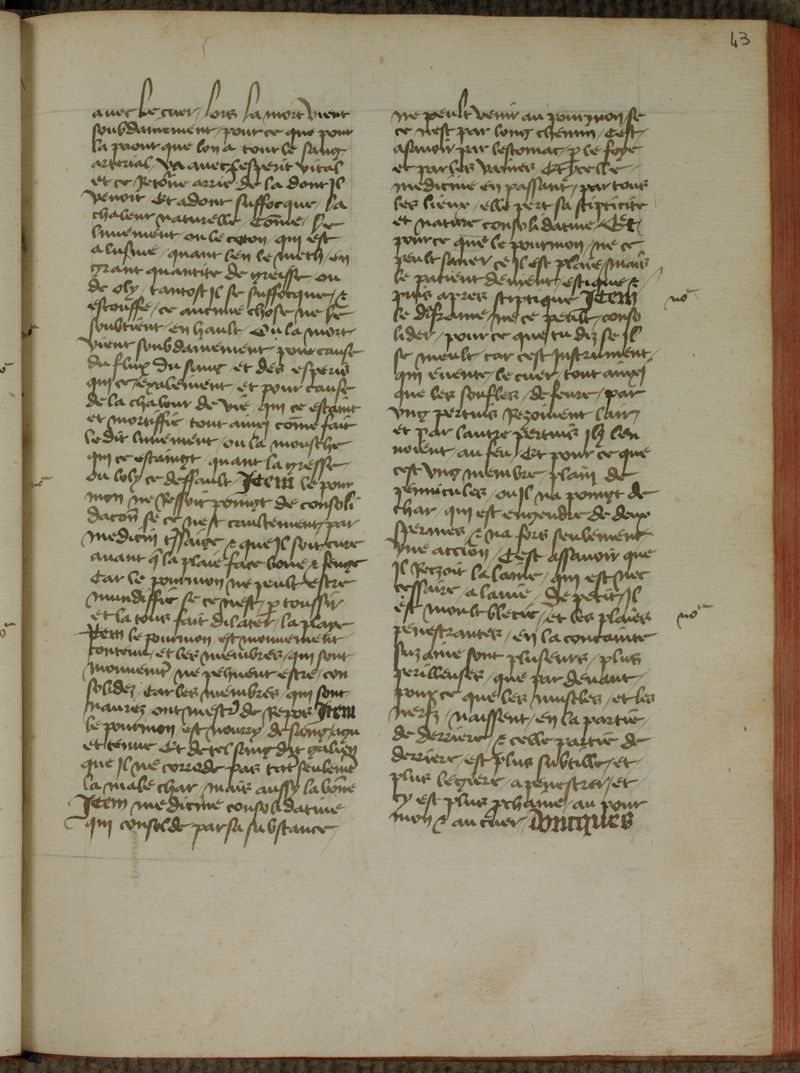 43
avec le cuer / lors la mort vient
soubdainement / pour ce que pour
la paour que lon a tout le sang
arterial va avec lesperit vital
et ce retõne arrie de la dont il
venoit Et adont suffocque / la
chaleur naturelle Cõme / le
luminement ou le coton qui est
alusme / quant len le meth / en
grant quantite de gresse ou
de oly / tantost il se suffocque / &
estouffe / ce aucune chose ne le
soubtient en hault Ou la mort
vient soubdainement pour cause
du flux du sang et des esperis
qui ce exalement et pour cause
de la chaleur de vie qui ce estaint
et mortiffie tout ainsi cõme fait
le dit luminement ou la mousche
qui ce estaingt quant la gresse
ou loly ce deffault Item le pour
mon ne ressoit poingt de consoli
dacon se ce nest caultement / par
medicin saige & que il soit cure
avant q̃ la plaie face boue & fenge
Car le poulmon ne peult estre
mundiffie se ce nest / p toussir
et la tous fait dilater / la plaie
Item le poulmon est mouvement
contenu / et les membres / qui sont
mouvent ne pehuent estre / con
solidez Car les membres / qui sont
naurez ont mestr de repos Item
le poulmon est nourry de sang / agu
et tenue Et de tel sang dit galien
que il ne corrode pas tat seulemẽt
la male char mais aussy la bõne
Item medicine consolidative
qui consolide par sa substance
ne peult venir au poulmon se
ce nest par long chemin / Cest
asavoir par lestomac / p le foye
et par les vaines Et ycelle
medicine en passant / par tous
les lieux / elle pert sa stipticite
et nature consolidative / Cest
pour ce que le poulmon / ne ce
peult saner ce il est plaie / mais
le pacient devient / estique / &
puis apres stiptique Item
le dyafrãme / ne ce peult / conso
lider / pour ce que tu diz se il
se meult car cest instrument,
qui evente / le cuer / tout ainsi
que les soufles / de fevre / par
vng pertuis rezoivent lair /
et par lautre pertuis ilz len
voient au feu Et pour ce que
cest vng membre / plain de
pennicules ou il na poingt de
char qui est engendre de deux
spermes & na fors seulement
vne accion / Cest assavoir que
il rezoit la laine / qui est nec
cessaire / a lame / De petit / il
est moult blecie / et les plaies
penestrantes / en la concavite
suz ame sont plusieurs / plus
perilleuses / que par devant
pour ce que les muscles / et les
nerfz / naissent / en la partie
de derriere / & celle partie de
derriere / est plus subtille / et
plus legiere / a penestrer / et
cy est plus pchaine / au poul
mon & au cuer / Doncques
no
no